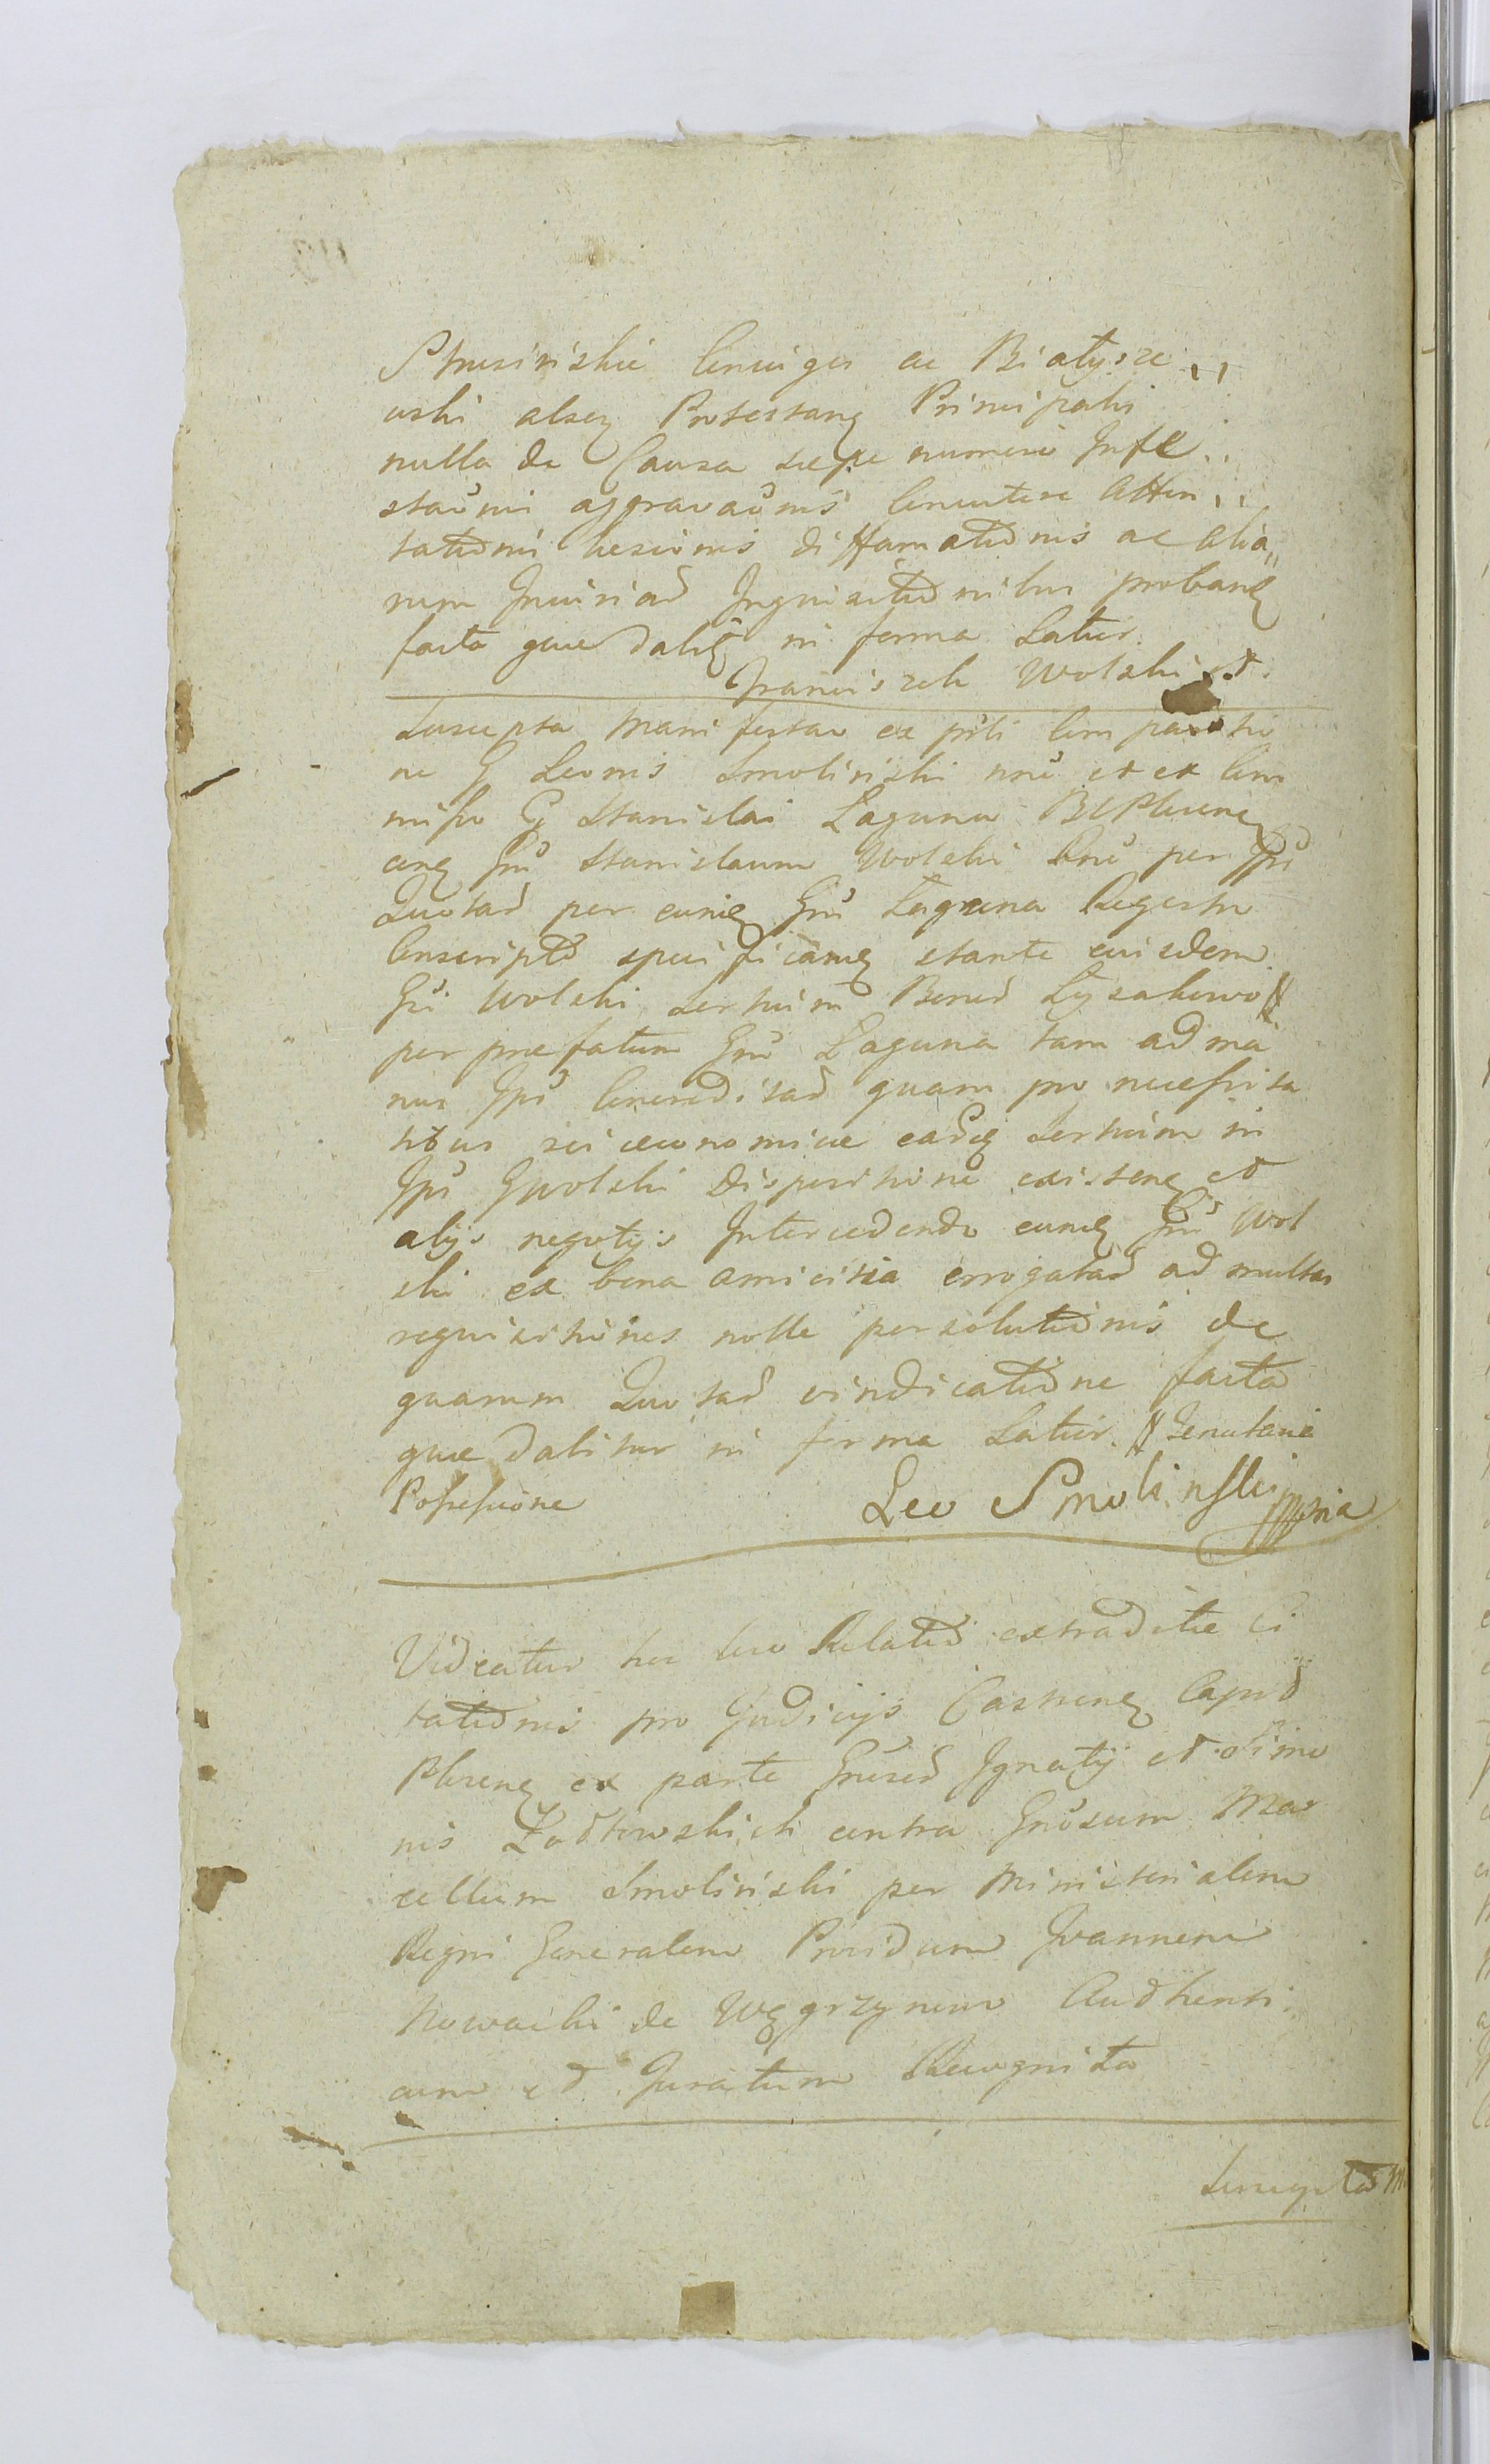 Strusinskie Coniuges ac Białysze,,
wski alseq Protestanq Principali
nulla de Causa saepe numero Infe,,
staonni aggravaonis Conuitere Atten,,
tationni laesionis diffamationis ac alia,,
rum Iniuriad Inquisitionibus probanq
facta quae dabiq in forma Latior.
Franciszek Wolski
Suscepta Manifestao ex pnti Comparitio
ne G Leonis Smolinski nne et ex Com
misso G Stanislai Laguna BCPlocenq
conq Gnu Stanislaum Wolski One per Ipsu
Quotad per eunq Gnu Laguna Regestro
Conscripto specificanq stante eiusdem
Gni Wolski Sortium Bonud Łysakowo //
per praefatum Gnu Laguna tam ad ma
nus Ipsi Concreditad quam pro necessita
tibus rei oeconomicae eadq Sortium in
Ipsi GWolski Dispositione existenq et
alijs negotijs Intercedendo eunq Gnu Wol
ski ex bona amicitia errogatad ad multas
requisitiones nolle persolutionis de
quarum Quotad vindicatione facta
quae dabitur in forma Latior. // Tenutaria
Possessione
Leo Smolinski mpria
Videatur hoc loco Relatio extraditae Ci
tationis pro Judicijs Castrenq Capit
Plocenq ex parte Gnused Ignatij et Simo
nis Zadtowskich contra Gnosum Mar
cellum Smolinski per Ministerialem
Regni Generalem Providum Joannem
Nowacki de Węgrzynowo Authenti
cum et Juratum Recognita
Suscepta M